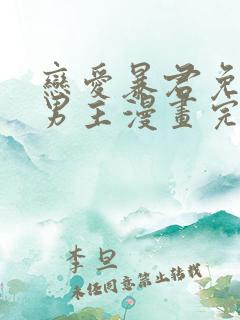 戀愛暴君免
男主漫畫完
李旦
未经同意禁止转载